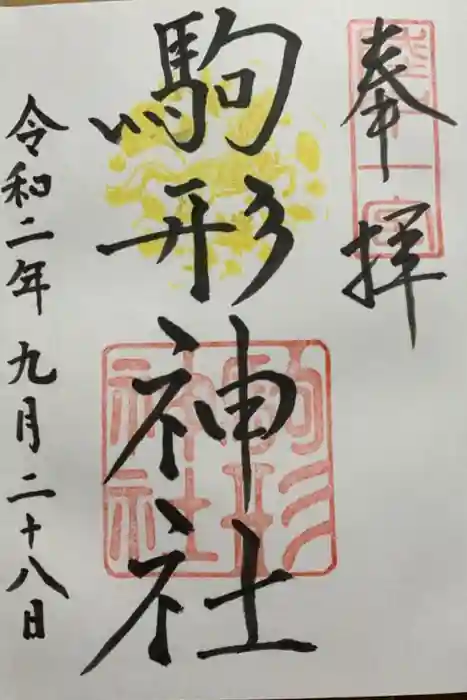 奉拝
陸中一宮
駒形神社
駒形神社
令和二年九月二十八日